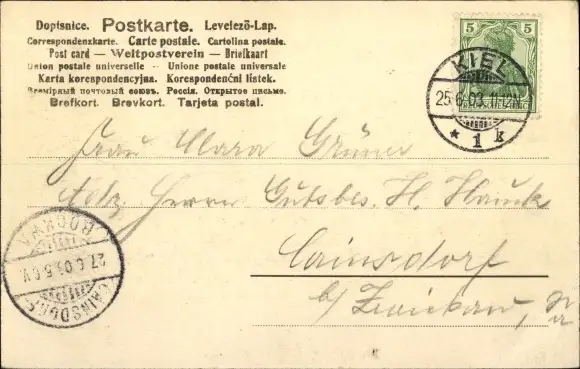 Dopisnice. Postkarte. Levelező-Lap.
Correspondenzkarte. Carte postale. Cartolina postale.
Post card — Weltpostverein — Briefkaart
Union postale universelle -- Unione postale universale
Karta korespondencyjna. Korespondenční listek.
Всемірный почтовый союзъ. Россія. Открытое письмо.
Brefkort. Brevkort. Tarjeta postal.
5 5
KIEL
25.6.03. 11-12N.
* 1 k
Frau Clara Grüner
Adr. Herrn Gutsbes. H. Hauck
Cainsdorf
b/ Zwickau,
BOCKWA
27.6.03. 5-6V
CAINSDORF